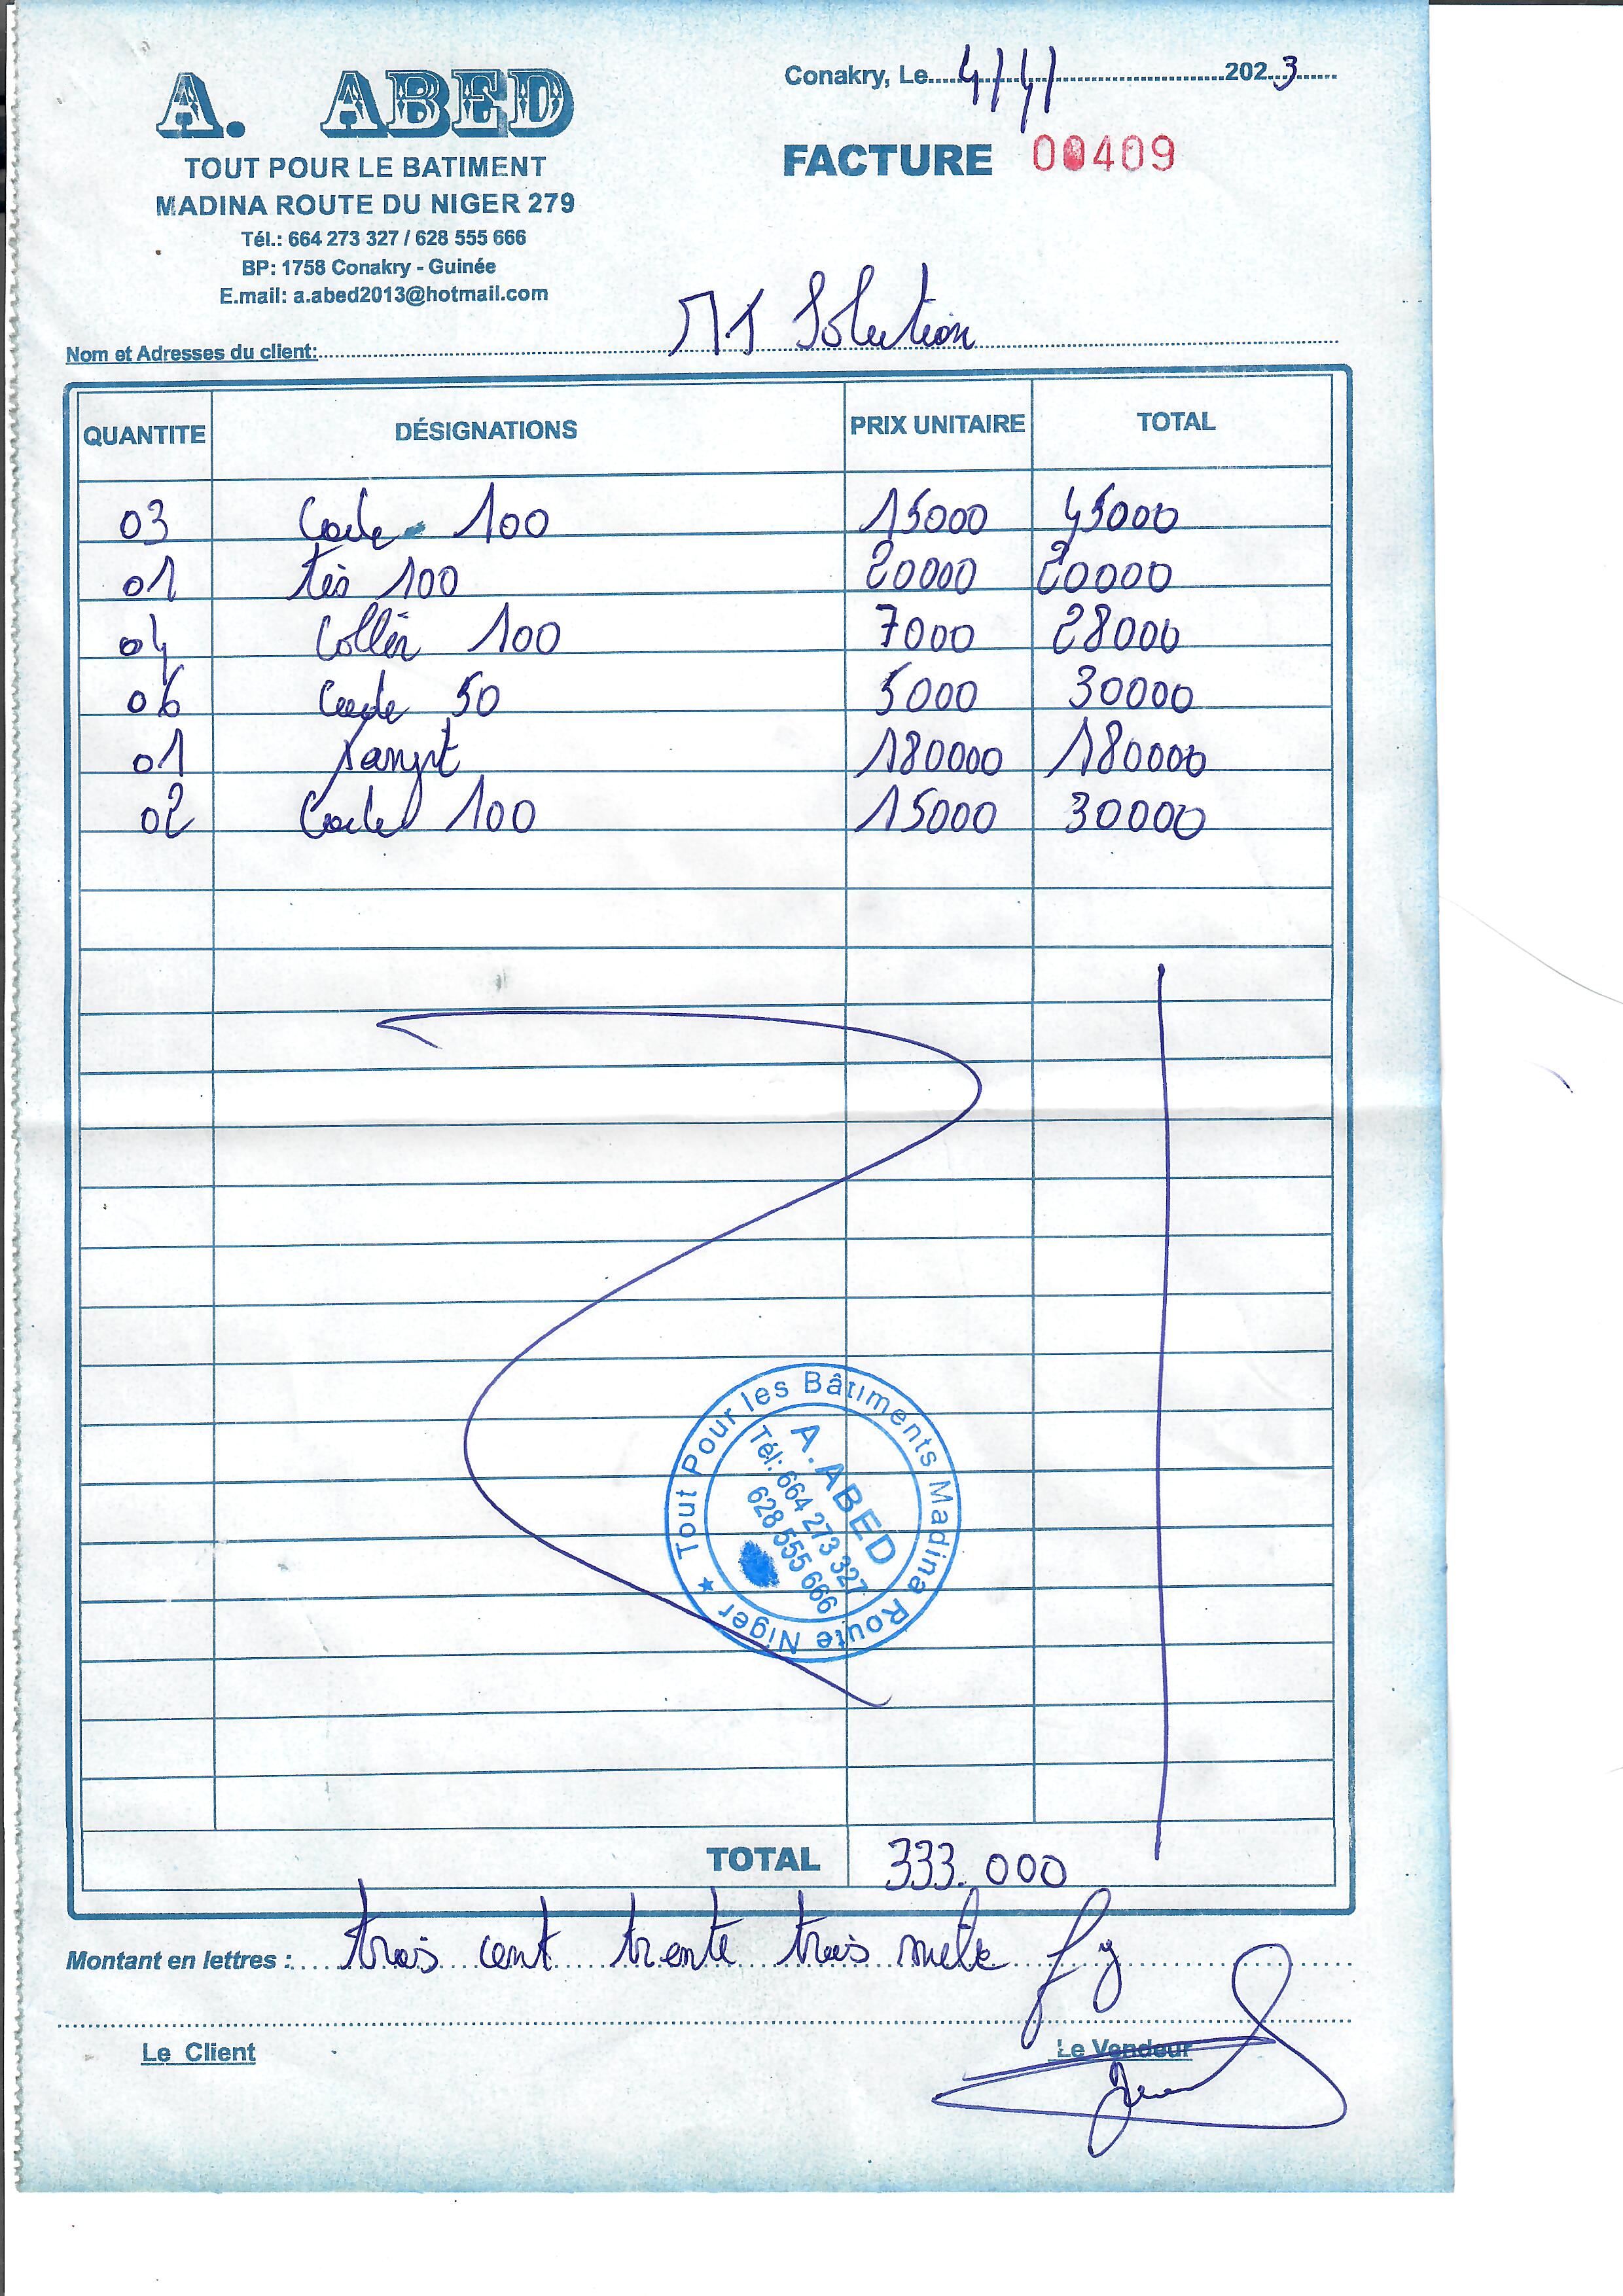 A. ABED
TOUT POUR LE BATIMENT
MADINA ROUTE DU NIGER 279
Tél.: 664 273 327 / 628 555 666
BP: 1758 Conakry - Guinée
E.mail: a.abed2013@hotmail.com
Conakry, Le 4/4/ 2023
FACTURE 00409
Nom et Adresses du client: M.S Solution
QUANTITE DÉSIGNATIONS PRIX UNITAIRE TOTAL
03 100 15000 45000
01 100 20000 20000
04 100 7000 28000
06 50 5000 30000
01 180000 180000
02 100 15000 30000
Tout Pour les Bâtiments Madina Route Niger ★
A.ABED
Tél: 664 273 327
628 555 666
TOTAL 333.000
Montant en lettres : trois cent trente trois mille fg
Le Client Le Vendeur